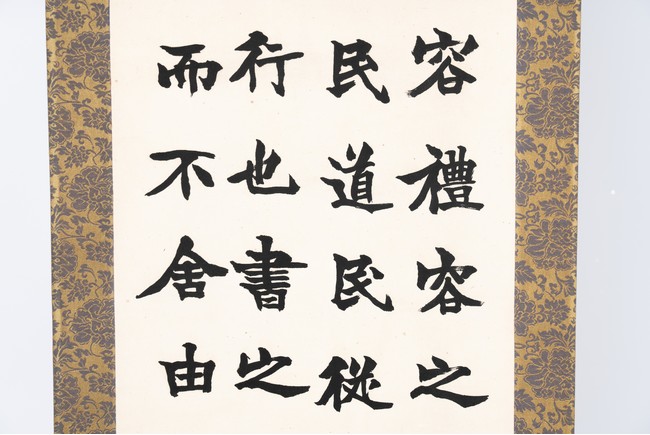 容禮容之
民道民從
行也書之
而不舍由